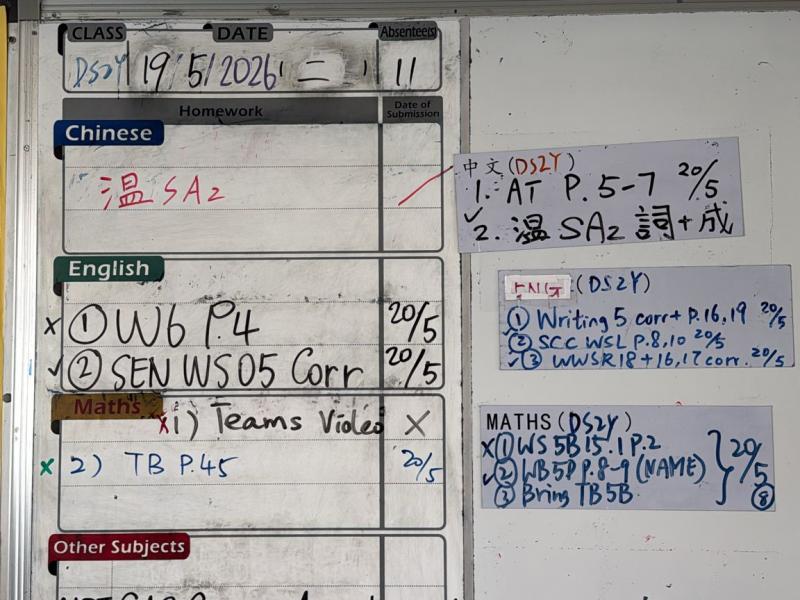 CLASS DATE Absentees
DS2Y 19/5/2026 二 11
Homework Date of Submission
Chinese
温 SA2
English
X ① W6 P.4 20/5
✓ ② SEN WS05 Corr 20/5
Maths
X 1) Teams Video X
X 2) TB P.45 20/5
Other Subjects
中文(DS2Y)
1. AT P.5-7 20/5
✓
2. 温 SA2 詞+成
ENG (DS2Y)
① Writing 5 corr+ P.16,19 20/5
✓② SCC WSL P.8,10 20/5
✓③ WWSR18+16,17 corr. 20/5
MATHS (DS2Y)
X① WS 5B15.1 P.2
✓② WB5D P.8-9 (NAME) } 20/5
③ Bring TB5B ⑧